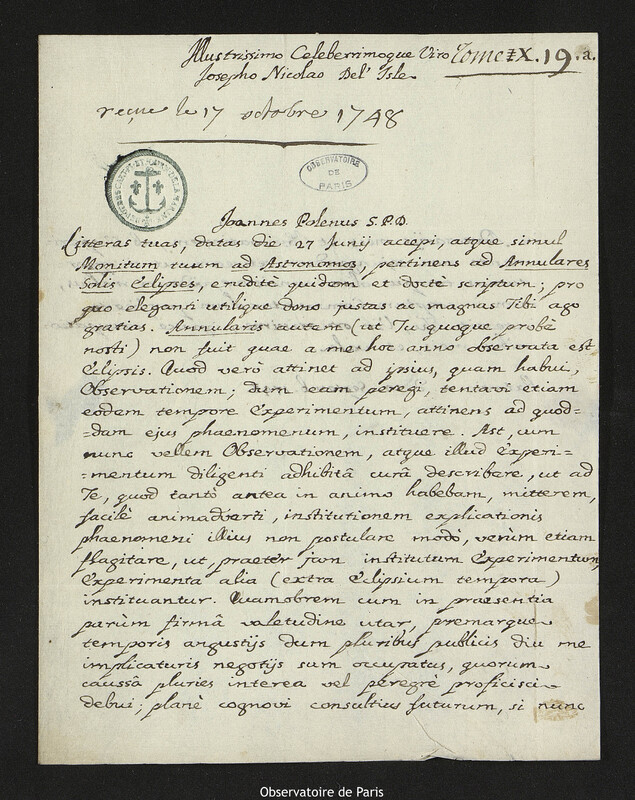 Illustrissimo Celeberrimoque Viro Tome X. 19.a.
Josepho Nicolao Del' Isle
reçue le 17 octobre 1748
OBSERVATOIRE
DE
PARIS
Joannes Polenus S.P.D.
Litteras tuas, datas die 27 Junij accepi, atque simul
Monitum tuum ad Astronomos, pertinens ad Annulares
Solis Eclipses, eruditè quidem et doctè scriptum; pro
quo eleganti utilique dono justas ac magnas Tibi ago
gratias. Annularis autem (ut Tu quoque probè
nosti) non fuit quae a me hoc anno observata est
Eclipsis. Quod verò attinet ad ipsius, quam habui,
Observationem; dum eam peregi, tentavi etiam
eodem tempore Experimentum, attinens ad quod=
=dam ejus phaenomenum, instituere. Ast, cum
nunc vellem Observationem, atque illud Experi=
=mentum diligenti adhibitâ curâ describare, ut ad
Te, quod tantò antea in animo habebam, mitterem,
facilè animadverti, institutionem explicationis
phaenomeni illius non postulare modò, verùm etiam
flagitare, ut, praeter jam institutum Experimentum,
Experimenta alia (extra Eclipsium tempora)
instituantur. Quamobrem cum in praesentia
parùm firmâ valetudine utar, premarque
temporis angustijs dum pluribus publicis diu me
implicaturis negotijs sum occupatus, quorum
caussâ pluries interea vel peregrè proficisci
debui; planè cognovi consultius futurum, si nunc
Observatoire de Paris